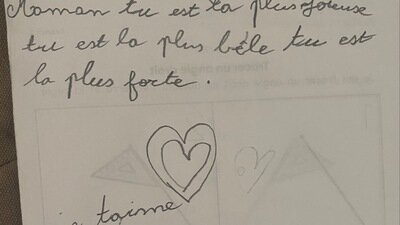 Maman tu est la plus joreuse
tu est la plus bèle tu est
la plus forte.
je taime